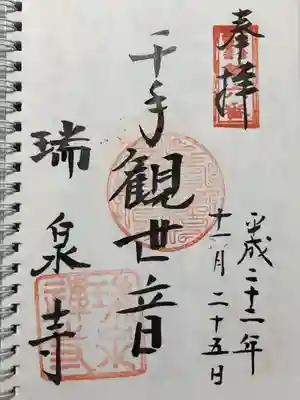 奉拝
平成二十二年
十一月二十五日
千手観世音
瑞泉寺